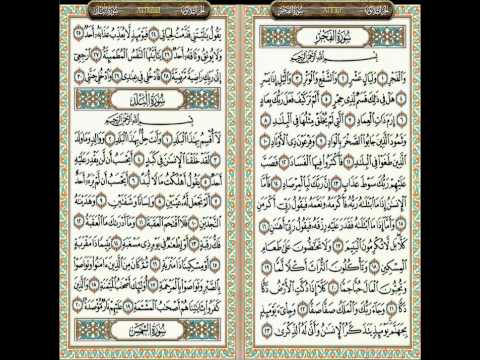 الجزء الثلاثون Al Fajr سورة الفجر
سُورَةُ الفَجْرِ
بِسْمِ اللَّهِ الرَّحْمَٰنِ الرَّحِيمِ
وَالْفَجْرِ ١ وَلَيَالٍ عَشْرٍ ٢ وَالشَّفْعِ وَالْوَتْرِ ٣ وَالَّيْلِ إِذَا يَسْرِ
٤ هَلْ فِي ذَٰلِكَ قَسَمٌ لِّذِي حِجْرٍ ٥ أَلَمْ تَرَ كَيْفَ فَعَلَ رَبُّكَ بِعَادٍ
٦ إِرَمَ ذَاتِ الْعِمَادِ ٧ الَّتِي لَمْ يُخْلَقْ مِثْلُهَا فِي الْبِلَادِ
٨ وَثَمُودَ الَّذِينَ جَابُوا الصَّخْرَ بِالْوَادِ ٩ وَفِرْعَوْنَ ذِي الْأَوْتَادِ ١٠
الَّذِينَ طَغَوْا فِي الْبِلَادِ ١١ فَأَكْثَرُوا فِيهَا الْفَسَادَ ١٢ فَصَبَّ
عَلَيْهِمْ رَبُّكَ سَوْطَ عَذَابٍ ١٣ إِنَّ رَبَّكَ لَبِالْمِرْصَادِ ١٤ فَأَمَّا
الْإِنسَٰنُ إِذَا مَا ابْتَلَىٰهُ رَبُّهُ فَأَكْرَمَهُ وَنَعَّمَهُ فَيَقُولُ رَبِّي أَكْرَمَنِ
١٥ وَأَمَّا إِذَا مَا ابْتَلَىٰهُ فَقَدَرَ عَلَيْهِ رِزْقَهُ فَيَقُولُ رَبِّي أَهَٰنَنِ ١٦
كَلَّا بَل لَّا تُكْرِمُونَ الْيَتِيمَ ١٧ وَلَا تَحَٰضُّونَ عَلَىٰ طَعَامِ
الْمِسْكِينِ ١٨ وَتَأْكُلُونَ التُّرَاثَ أَكْلًا لَّمًّا
١٩ وَتُحِبُّونَ الْمَالَ حُبًّا جَمًّا ٢٠ كَلَّا إِذَا دُكَّتِ الْأَرْضُ
دَكًّا دَكًّا ٢١ وَجَاءَ رَبُّكَ وَالْمَلَكُ صَفًّا صَفًّا ٢٢ وَجِا۟يءَ يَوْمَئِذٍ
بِجَهَنَّمَ يَوْمَئِذٍ يَتَذَكَّرُ الْإِنسَٰنُ وَأَنَّىٰ لَهُ الذِّكْرَىٰ ٢٣
الجزء الثلاثون Al Balad سورة البلد
يَقُولُ يَٰلَيْتَنِي قَدَّمْتُ لِحَيَاتِي ٢٤ فَيَوْمَئِذٍ لَّا يُعَذِّبُ عَذَابَهُ أَحَدٌ ٢٥
وَلَا يُوثِقُ وَثَاقَهُ أَحَدٌ ٢٦ يَٰأَيَّتُهَا النَّفْسُ الْمُطْمَئِنَّةُ ٢٧ ارْجِعِي
إِلَىٰ رَبِّكِ رَاضِيَةً مَّرْضِيَّةً ٢٨ فَادْخُلِي فِي عِبَٰدِي ٢٩ وَادْخُلِي جَنَّتِي ٣٠
سُورَةُ البَلَدِ
بِسْمِ اللَّهِ الرَّحْمَٰنِ الرَّحِيمِ
لَا أُقْسِمُ بِهَٰذَا الْبَلَدِ ١ وَأَنتَ حِلٌّ بِهَٰذَا الْبَلَدِ ٢ وَوَالِدٍ وَمَا وَلَدَ
٣ لَقَدْ خَلَقْنَا الْإِنسَٰنَ فِي كَبَدٍ ٤ أَيَحْسَبُ أَن لَّن يَقْدِرَ عَلَيْهِ
أَحَدٌ ٥ يَقُولُ أَهْلَكْتُ مَالًا لُّبَدًا ٦ أَيَحْسَبُ أَن لَّمْ يَرَهُ أَحَدٌ
٧ أَلَمْ نَجْعَل لَّهُ عَيْنَيْنِ ٨ وَلِسَانًا وَشَفَتَيْنِ ٩ وَهَدَيْنَٰهُ
النَّجْدَيْنِ ١٠ فَلَا اقْتَحَمَ الْعَقَبَةَ ١١ وَمَا أَدْرَىٰكَ مَا الْعَقَبَةُ ١٢
فَكُّ رَقَبَةٍ ١٣ أَوْ إِطْعَٰمٌ فِي يَوْمٍ ذِي مَسْغَبَةٍ ١٤ يَتِيمًا ذَا مَقْرَبَةٍ
١٥ أَوْ مِسْكِينًا ذَا مَتْرَبَةٍ ١٦ ثُمَّ كَانَ مِنَ الَّذِينَ ءَامَنُوا وَتَوَاصَوْا
بِالصَّبْرِ وَتَوَاصَوْا بِالْمَرْحَمَةِ ١٧ أُولَٰئِكَ أَصْحَٰبُ الْمَيْمَنَةِ ١٨ وَالَّذِينَ
كَفَرُوا بِـَٔايَٰتِنَا هُمْ أَصْحَٰبُ الْمَشْـَٔمَةِ ١٩ عَلَيْهِمْ نَارٌ مُّؤْصَدَةٌ ٢٠
سُورَةُ الشَّمْسِ